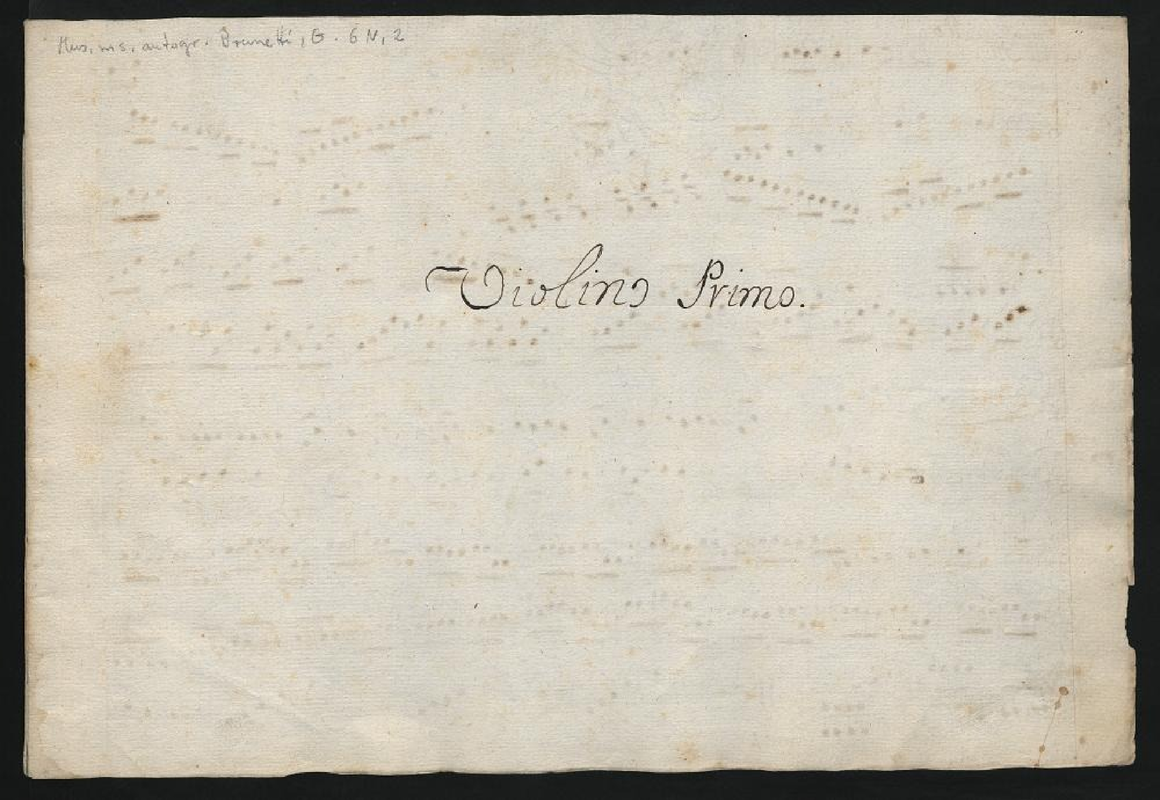 Mus. ms. autogr. Brunetti, G. 6 N, 2
Violino Primo.